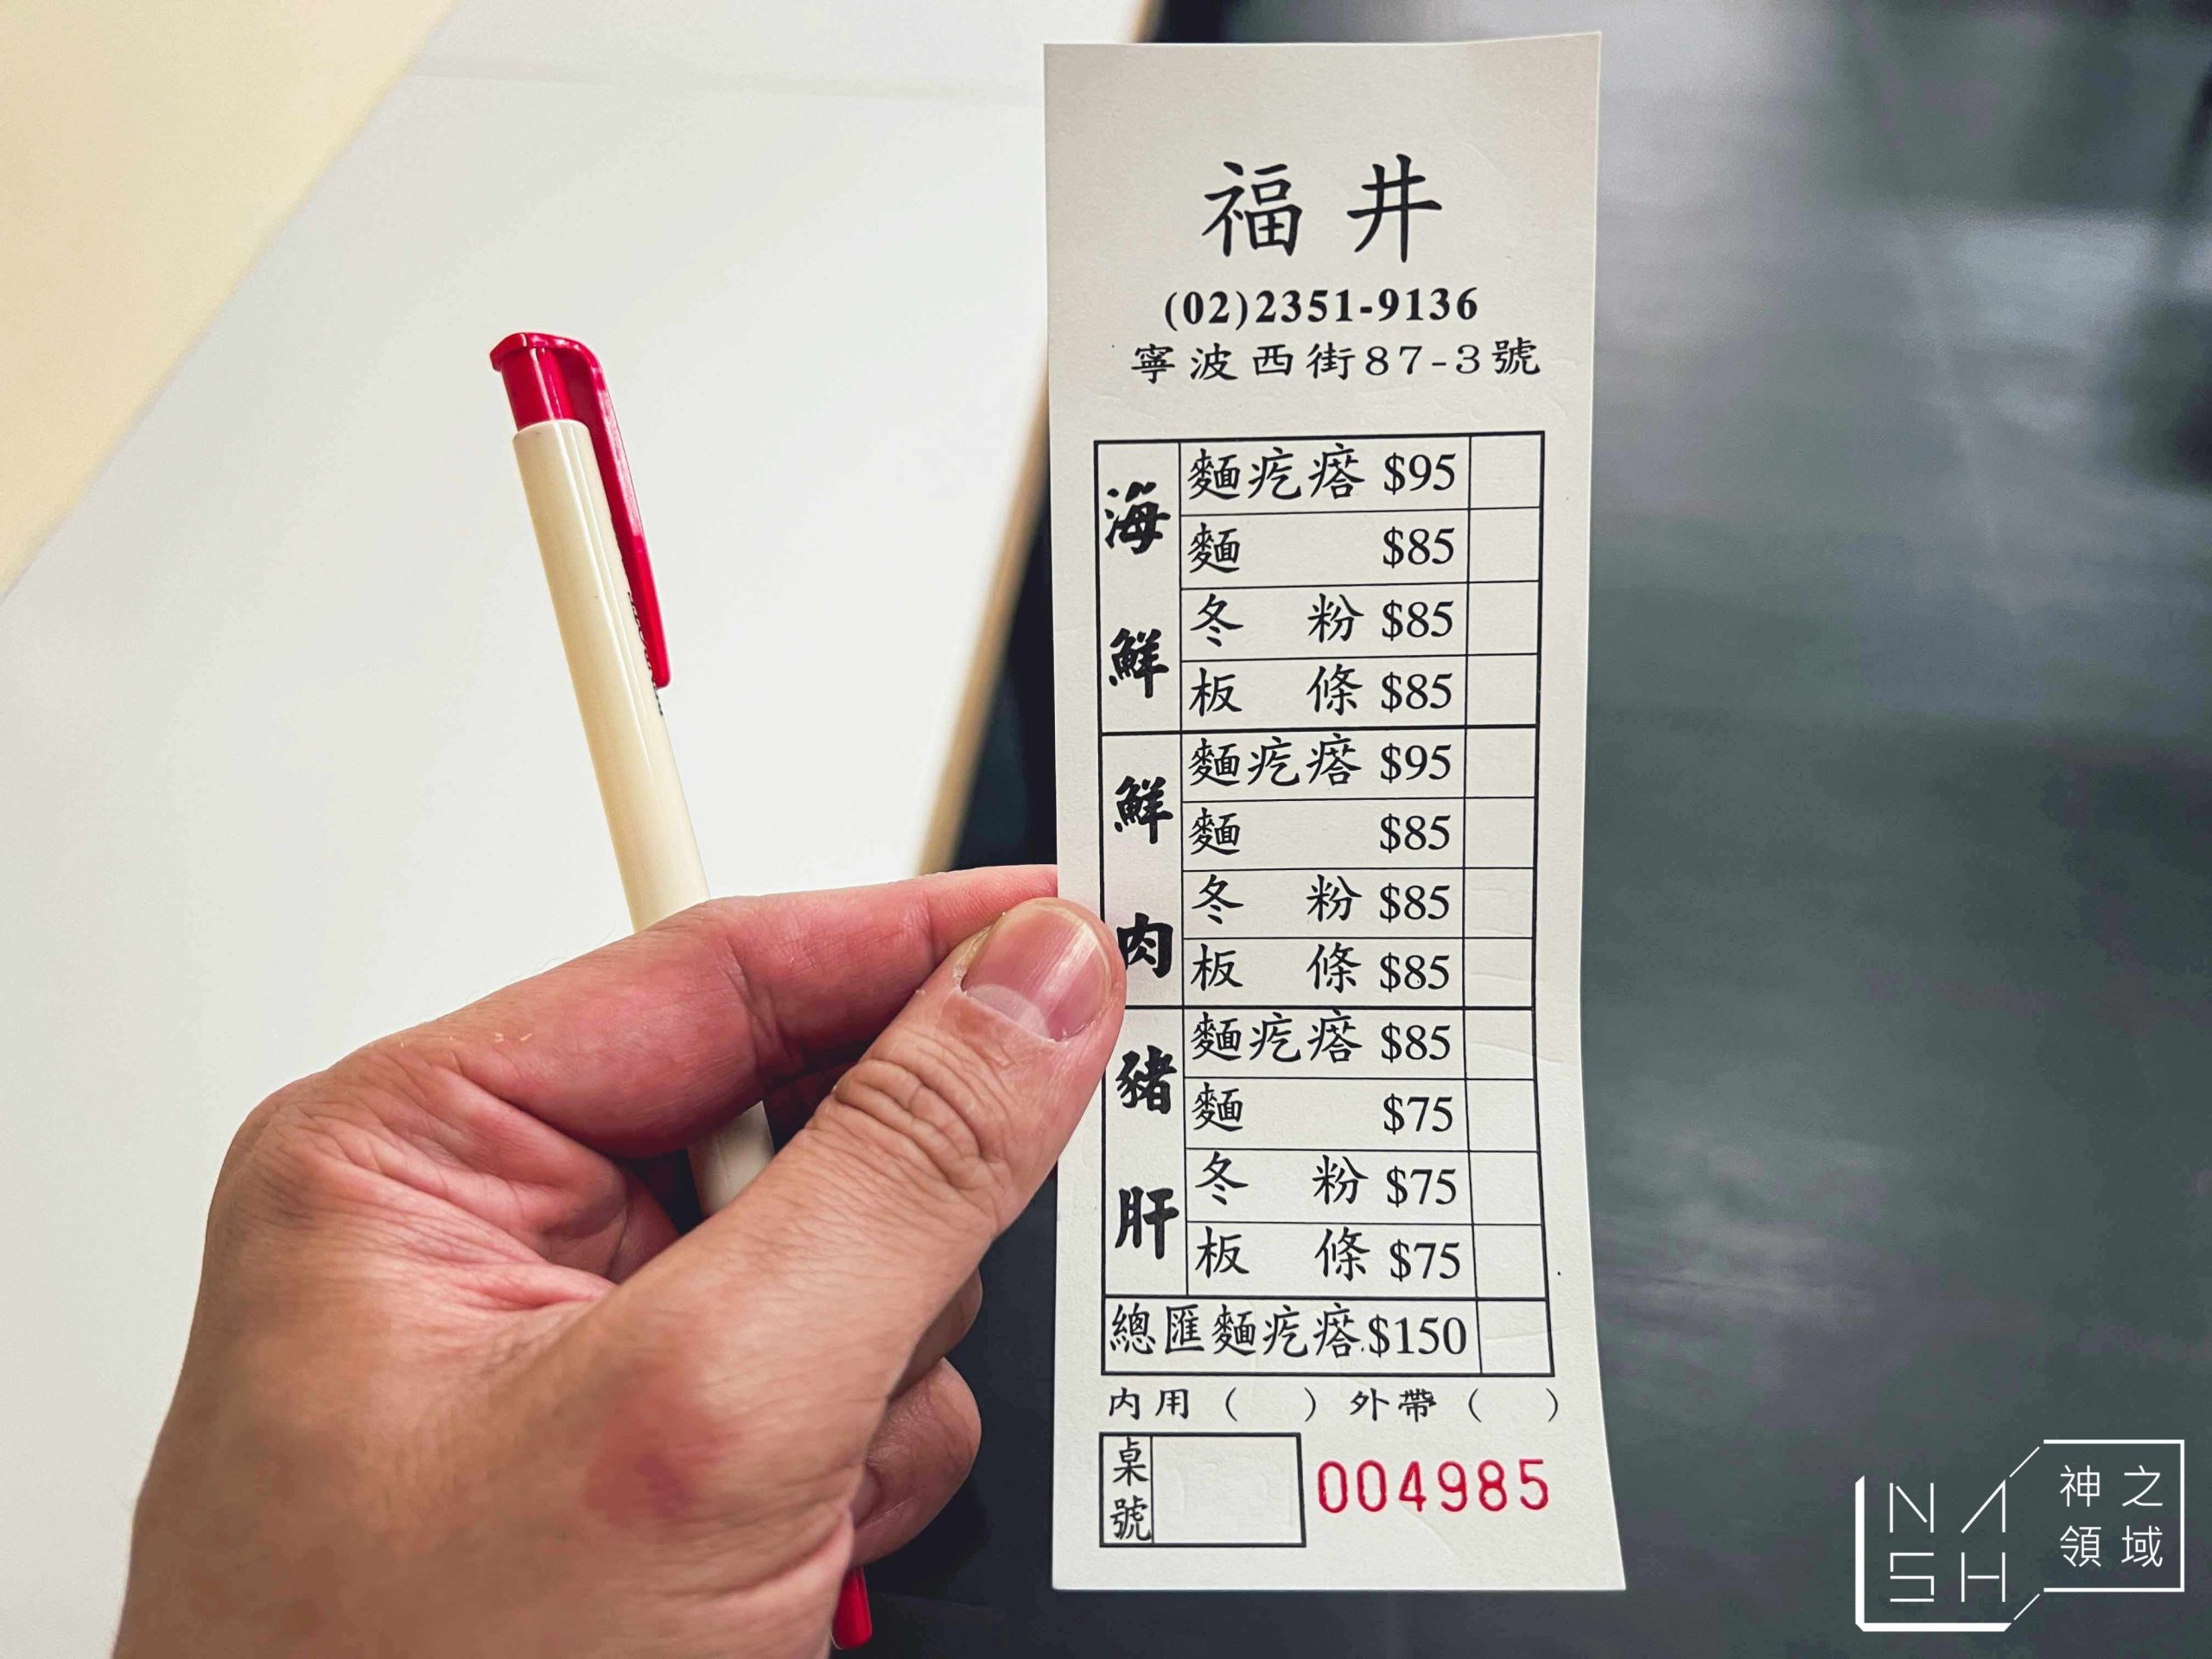 福井
(02)2351-9136
寧波西街87-3號
海鮮
麵疙瘩 $95
麵 $85
冬粉 $85
板條 $85
鮮肉
麵疙瘩 $95
麵 $85
冬粉 $85
板條 $85
豬肝
麵疙瘩 $85
麵 $75
冬粉 $75
板條 $75
總匯麵疙瘩 $150
內用（ ）外帶（ ）
桌號
004985
NASH
神之
領域